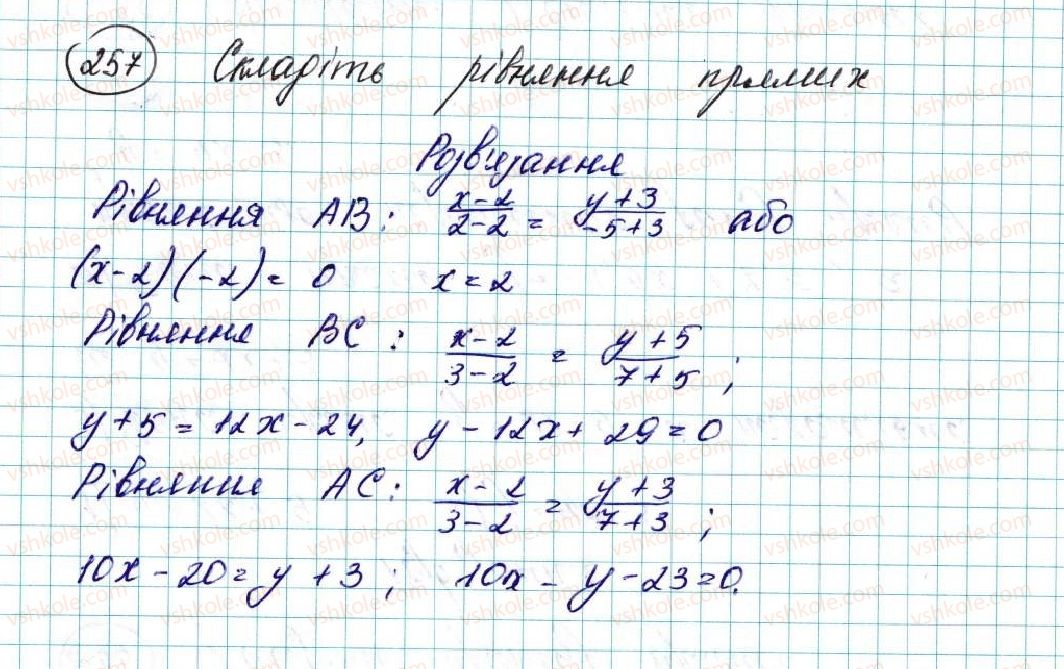 257 Складіть рівняння прямих
Розв'язання
Рівняння AB: \frac{x-2}{2-2} = \frac{y+3}{-5+3} або
(x-2)(-2)=0 x=2
Рівняння BC: \frac{x-2}{3-2} = \frac{y+5}{7+5};
y+5=12x-24, y-12x+29=0
Рівняння AC: \frac{x-2}{3-2} = \frac{y+3}{7+3};
10x-20=y+3; 10x-y-23=0.
vshkole.com